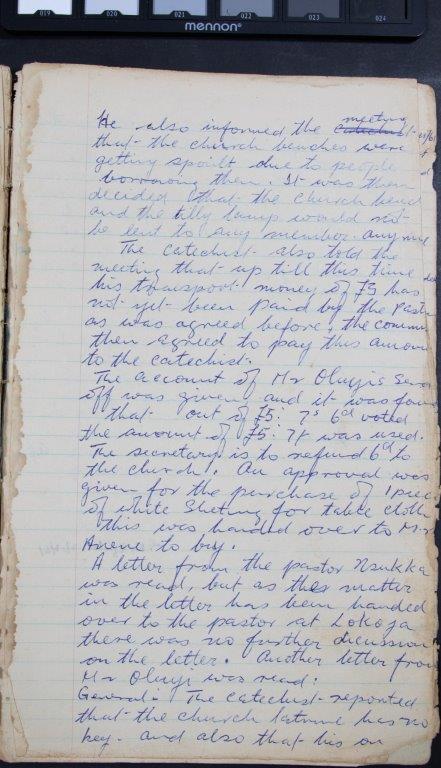 019 020 021 022 023 024
mennon
meeting
He also informed the catechist
that the church benches were
getting spoilt due to people
borrowing them. It was then
decided that the church benc
and the tilly lamp would not
be lent to any member anymore
The catechist also told the
meeting that up till this time
his transport money of £3 has
not yet been paid by the Pasto
as was agreed before, the commi
then agreed to pay this amoun
to the catechist.
The account of Mr Oluyi's Sen
off was given and it was foun
that out of £5: 7s 6d voted
the amount of £5: 7s was used.
The secretary is to refund 6d to
the church. An approval was
given for the purchase of 1 piec
of white Sheting for table cloth
this was handed over to Mrs
Anene to buy.
A letter from the pastor Nsukka
was read, but as the matter
in the letter has been handed
over to the pastor at Lokoja
there was no further dicussion
on the letter. Another letter from
Mr Oluyi was read.
General: The catechist reported
that the church latrine has no
key. and also that his on